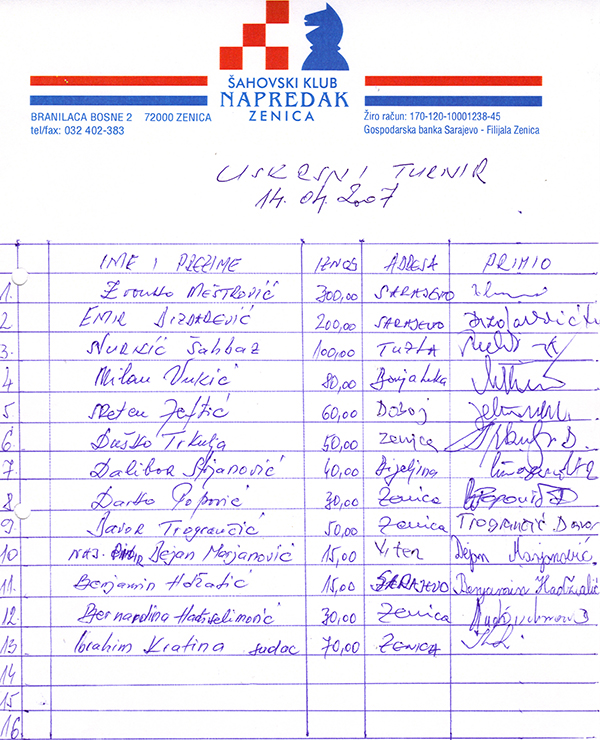 ŠAHOVSKI KLUB
NAPREDAK
ZENICA
BRANILACA BOSNE 2 72000 ZENICA
tel/fax: 032 402-383
Žiro račun: 170-120-10001238-45
Gospodarska banka Sarajevo - Filijala Zenica
USKRSNI TURNIR
14. 04. 2007
IME I PREZIME IZNOS ADRESA PRIMIO
1. Zvonko MEŠTROVIĆ 300,00 SARAJEVO
2 EMIR DIZDAREVIĆ 200,00 SARAJEVO
3. NURKIĆ Šahbaz 100,00 TUZLA
4 Milan Vukić 80,00 Banjaluka
5 Sreten 60,00 Doboj
6 Duško Trkulja 50,00 Zenica
7. Dalibor Stjanović 40,00 Bijeljina
8 Darko Popović 30,00 Zenica
9. Davor Trogrančić 50,00 Zenica TROGRANČIĆ Davor
10 NAJ. Dejan Marjanović 15,00 Vitez Dejan Marjanović
11. Benjamin Hodžalić 15,00 SARAJEVO Benjamin Hadžialić
12. Bernardina Hadžiselimović 30,00 Zenica
13 Ibrahim Kratina sudac 70,00 ZENICA
14
15
16